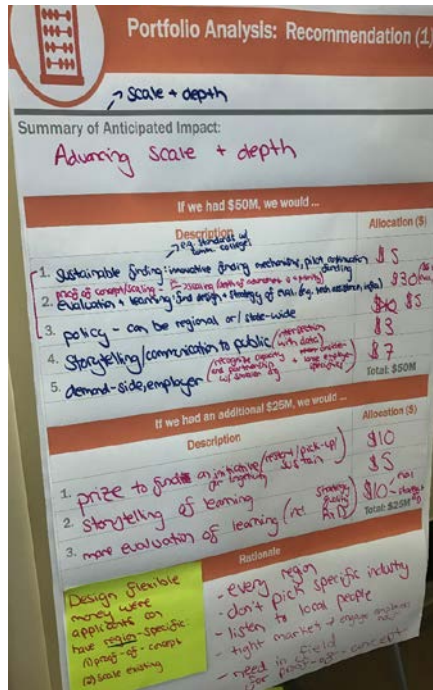 Portfolio Analysis: Recommendation (1)
→ scale + depth
Summary of Anticipated Impact:
Advancing scale + depth
If we had $50M, we would ...
Description
Allocation ($)
e.g. standards w/
comm. college
1. sustainable funding: innovative funding mechanisms, pilot continuation
funding
$5
proof of concept/scaling
2. evaluation + learning: fund design + strategy of eval. (e.g. tech assistance, infra)
$30
3. policy - can be regional or/state-wide
$10 $5
4. Storytelling/communication to public (intersection
with data)
$3
5. demand-side, employer (recognize capacity
and partnership
$7
Total: $50M
If we had an additional $25M, we would ...
Description
Allocation ($)
1. prize to fund an initiative (restart/pick-up/
for longevity sustain)
$10
2. storytelling of learning
$5
3. more evaluation of learning (incl.
$10
Total: $25M
Design flexible
money were
applicants can
have region-specific:
(1) proof-of-concept
(2) scale existing
Rationale
- every region
- don't pick specific industry
- listen to local people
- tight market → engage employers
now
- need in field
for proof-of-concept